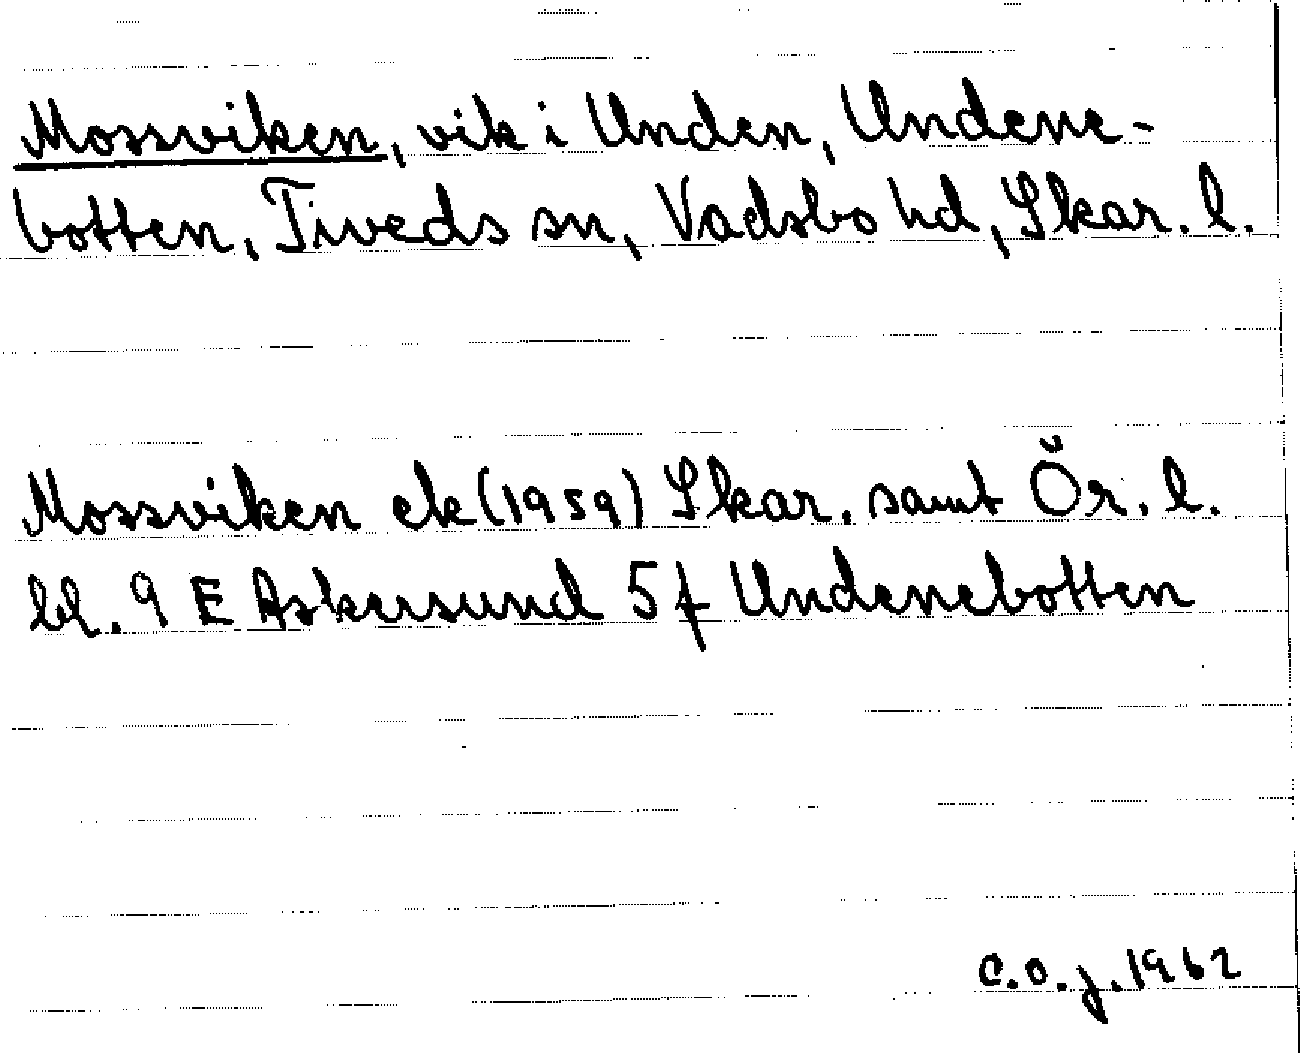 Mossviken, vik i Unden, Undene-
botten, Tiveds sn, Vadsbo hd, Skar. l.
Mossviken ek (1959) Skar. samt Ör. l.
bl. 9 E Askersund 5 f Undenebotten
C.O.J. 1962